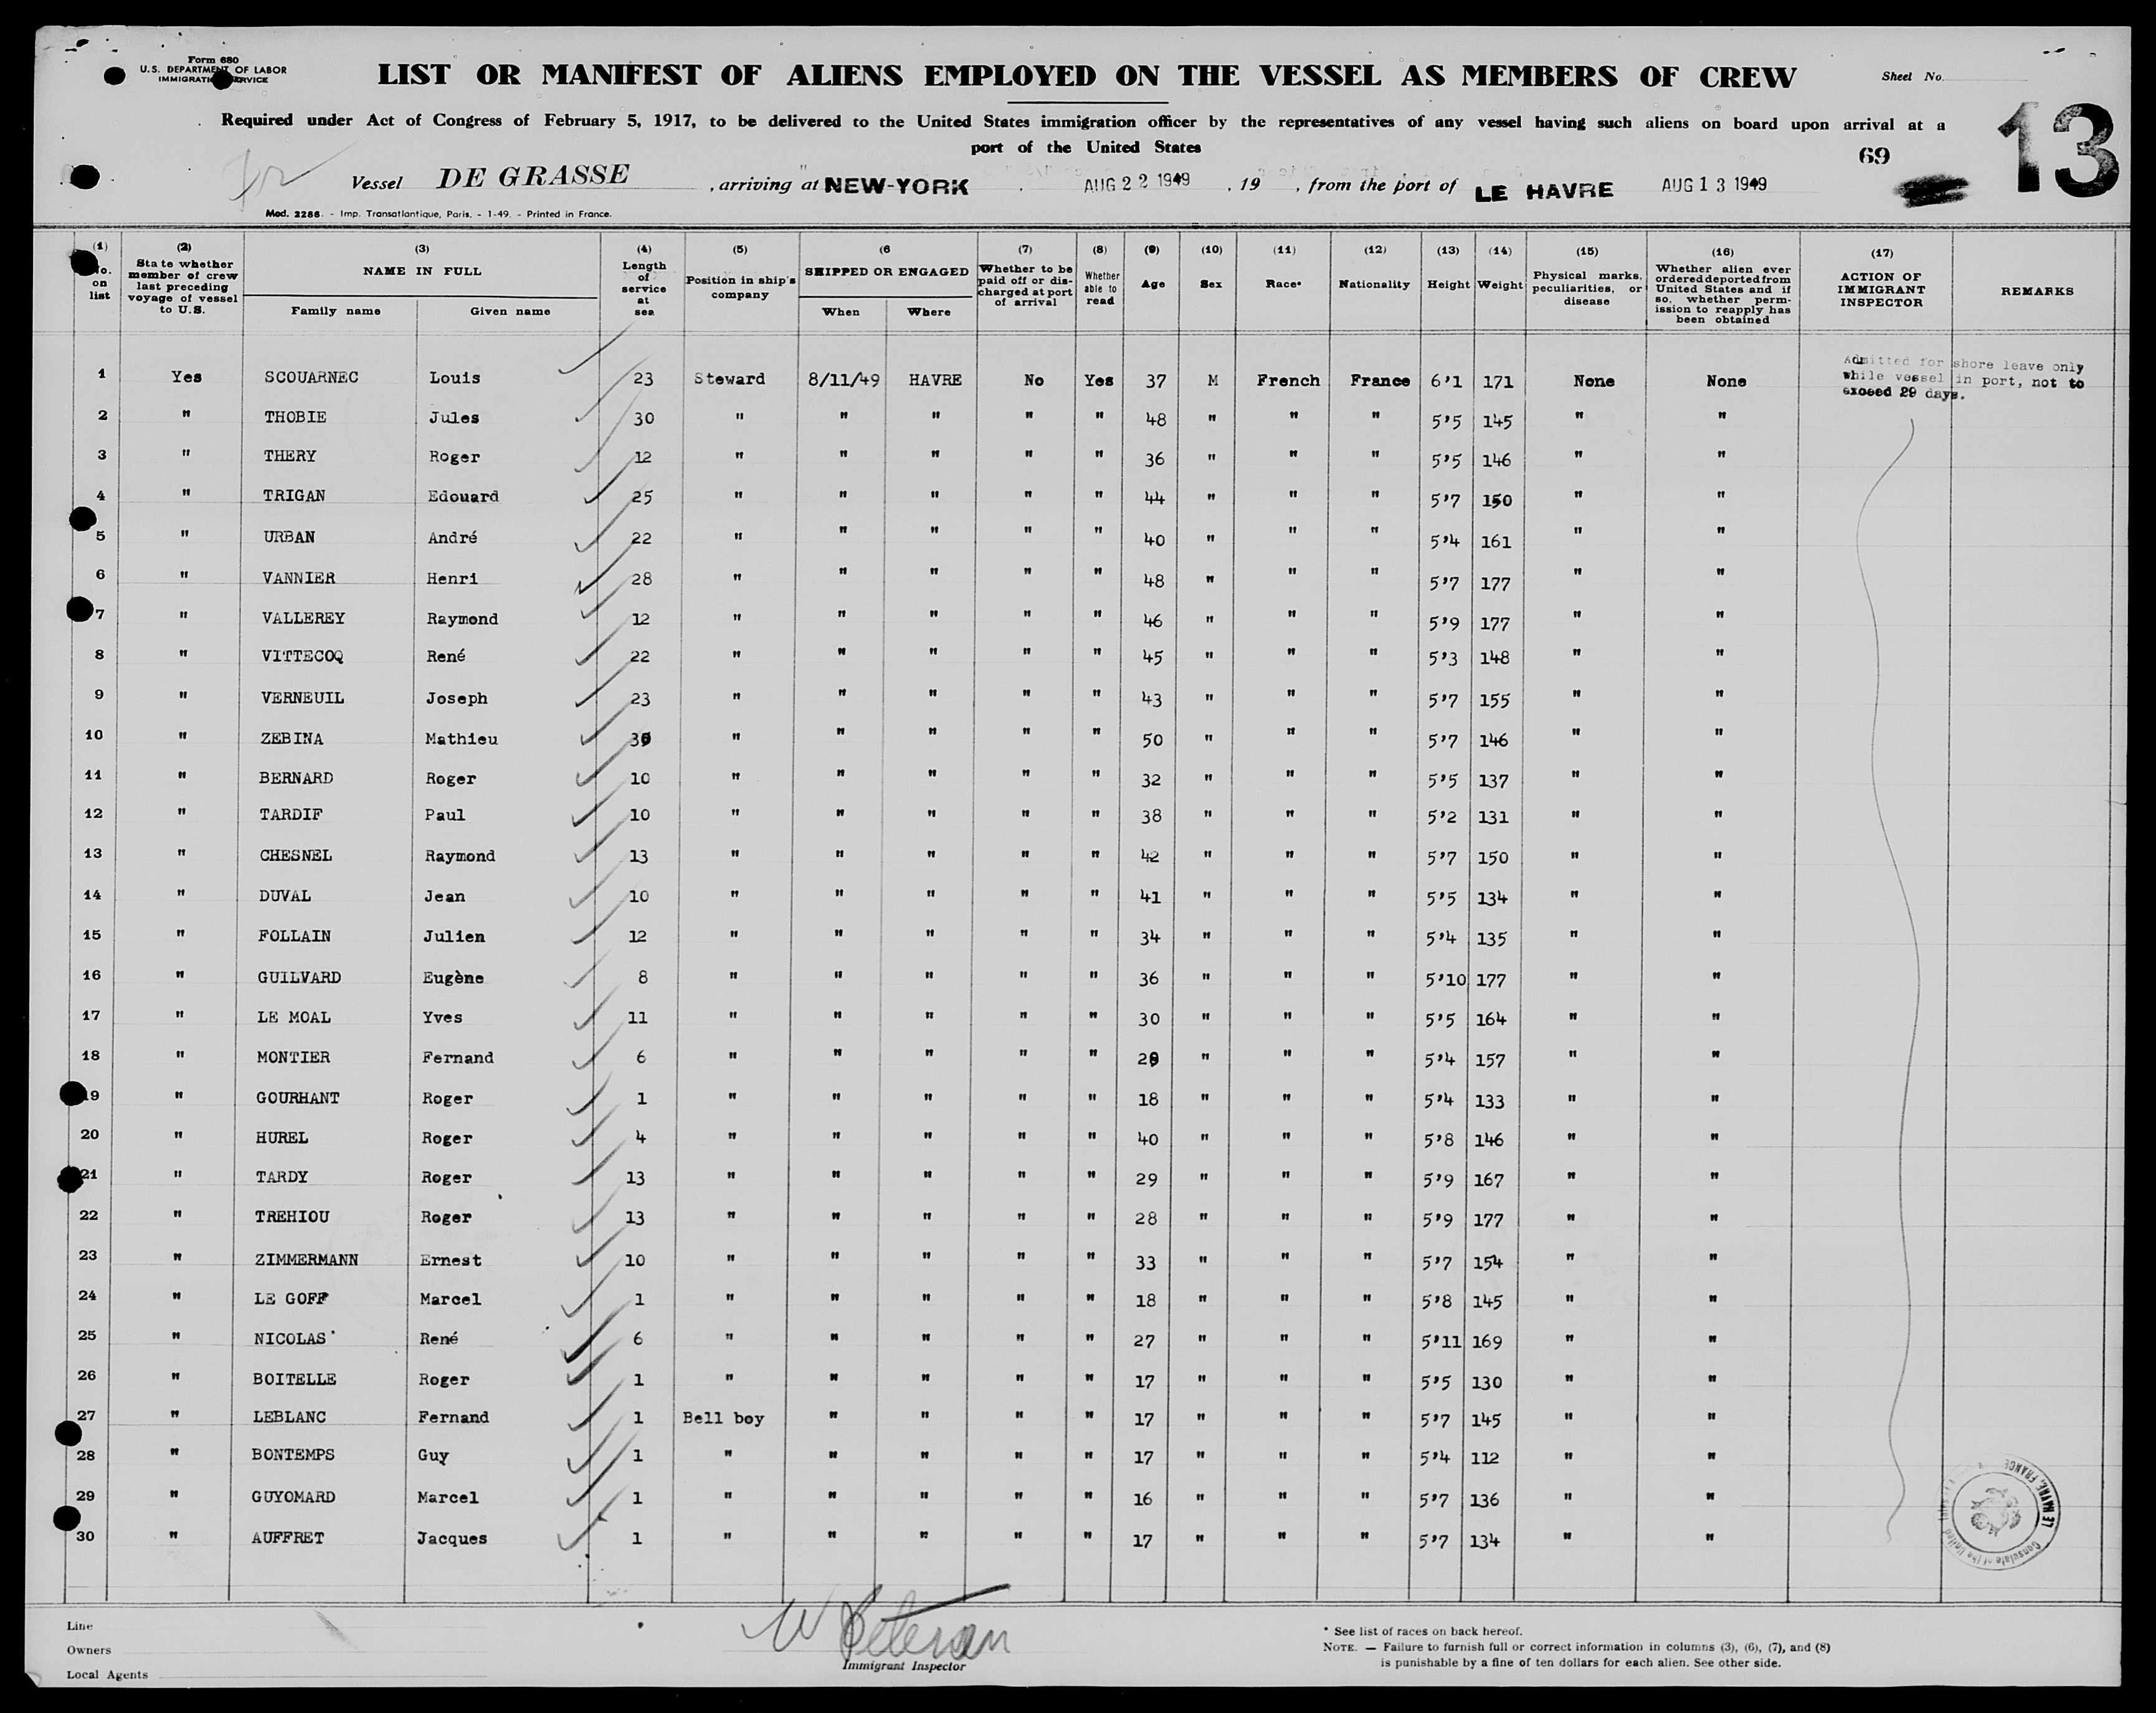 Form 680
U.S. DEPARTMENT OF LABOR
IMMIGRATION SERVICE
LIST OR MANIFEST OF ALIENS EMPLOYED ON THE VESSEL AS MEMBERS OF CREW
Sheet No.
13
Required under Act of Congress of February 5, 1917, to be delivered to the United States immigration officer by the representatives of any vessel having such aliens on board upon arrival at a
port of the United States
69
Vessel DE GRASSE , arriving at NEW-YORK AUG 22 1949 , 19 , from the port of LE HAVRE AUG 13 1949
Mod. 2286. - Imp. Transatlantique, Paris. - 1-49. - Printed in France.
(1) No. on list (2) State whether member of crew last preceding voyage of vessel to U.S. (3) NAME IN FULL Family name Given name (4) Length of service at sea (5) Position in ship's company (6 SHIPPED OR ENGAGED When Where (7) Whether to be paid off or discharged at port of arrival (8) Whether able to read (9) Age (10) Sex (11) Race* (12) Nationality (13) Height (14) Weight (15) Physical marks, peculiarities, or disease (16) Whether alien ever ordered deported from United States and if so, whether permission to reapply has been obtained (17) ACTION OF IMMIGRANT INSPECTOR REMARKS
1 Yes SCOUARNEC Louis 23 Steward 8/11/49 HAVRE No Yes 37 M French France 6'1 171 None None Admitted for shore leave only
while vessel in port, not to
exceed 29 days.
2 " THOBIE Jules 30 " " " " " 48 " " " 5'5 145 " "
3 " THERY Roger 12 " " " " " 36 " " " 5'5 146 " "
4 " TRIGAN Edouard 25 " " " " " 44 " " " 5'7 150 " "
5 " URBAN André 22 " " " " " 40 " " " 5'4 161 " "
6 " VANNIER Henri 28 " " " " " 48 " " " 5'7 177 " "
7 " VALLEREY Raymond 12 " " " " " 46 " " " 5'9 177 " "
8 " VITTECOQ René 22 " " " " " 45 " " " 5'3 148 " "
9 " VERNEUIL Joseph 23 " " " " " 43 " " " 5'7 155 " "
10 " ZEBINA Mathieu " " " " " 50 " " " 5'7 146 " "
11 " BERNARD Roger 10 " " " " " 32 " " " 5'5 137 " "
12 " TARDIF Paul 10 " " " " " 38 " " " 5'2 131 " "
13 " CHESNEL Raymond 13 " " " " " 42 " " " 5'7 150 " "
14 " DUVAL Jean 10 " " " " " 41 " " " 5'5 134 " "
15 " FOLLAIN Julien 12 " " " " " 34 " " " 5'4 135 " "
16 " GUILVARD Eugène 8 " " " " " 36 " " " 5'10 177 " "
17 " LE MOAL Yves 11 " " " " " 30 " " " 5'5 164 " "
18 " MONTIER Fernand 6 " " " " " 29 " " " 5'4 157 " "
19 " GOURHANT Roger 1 " " " " " 18 " " " 5'4 133 " "
20 " HUREL Roger 4 " " " " " 40 " " " 5'8 146 " "
21 " TARDY Roger 13 " " " " " 29 " " " 5'9 167 " "
22 " TREHIOU Roger 13 " " " " " 28 " " " 5'9 177 " "
23 " ZIMMERMANN Ernest 10 " " " " " 33 " " " 5'7 154 " "
24 " LE GOFF Marcel 1 " " " " " 18 " " " 5'8 145 " "
25 " NICOLAS René 6 " " " " " 27 " " " 5'11 169 " "
26 " BOITELLE Roger 1 " " " " " 17 " " " 5'5 130 " "
27 " LEBLANC Fernand 1 Bell boy " " " " 17 " " " 5'7 145 " "
28 " BONTEMPS Guy 1 " " " " " 17 " " " 5'4 112 " "
29 " GUYOMARD Marcel 1 " " " " " 16 " " " 5'7 136 " "
30 " AUFFRET Jacques 1 " " " " " 17 " " " 5'7 134 " "
Consulate of the United LE HAVRE, FRANCE
Line
Owners
Local Agents
Immigrant Inspector
* See list of races on back hereof.
NOTE. — Failure to furnish full or correct information in columns (3), (6), (7), and (8)
is punishable by a fine of ten dollars for each alien. See other side.